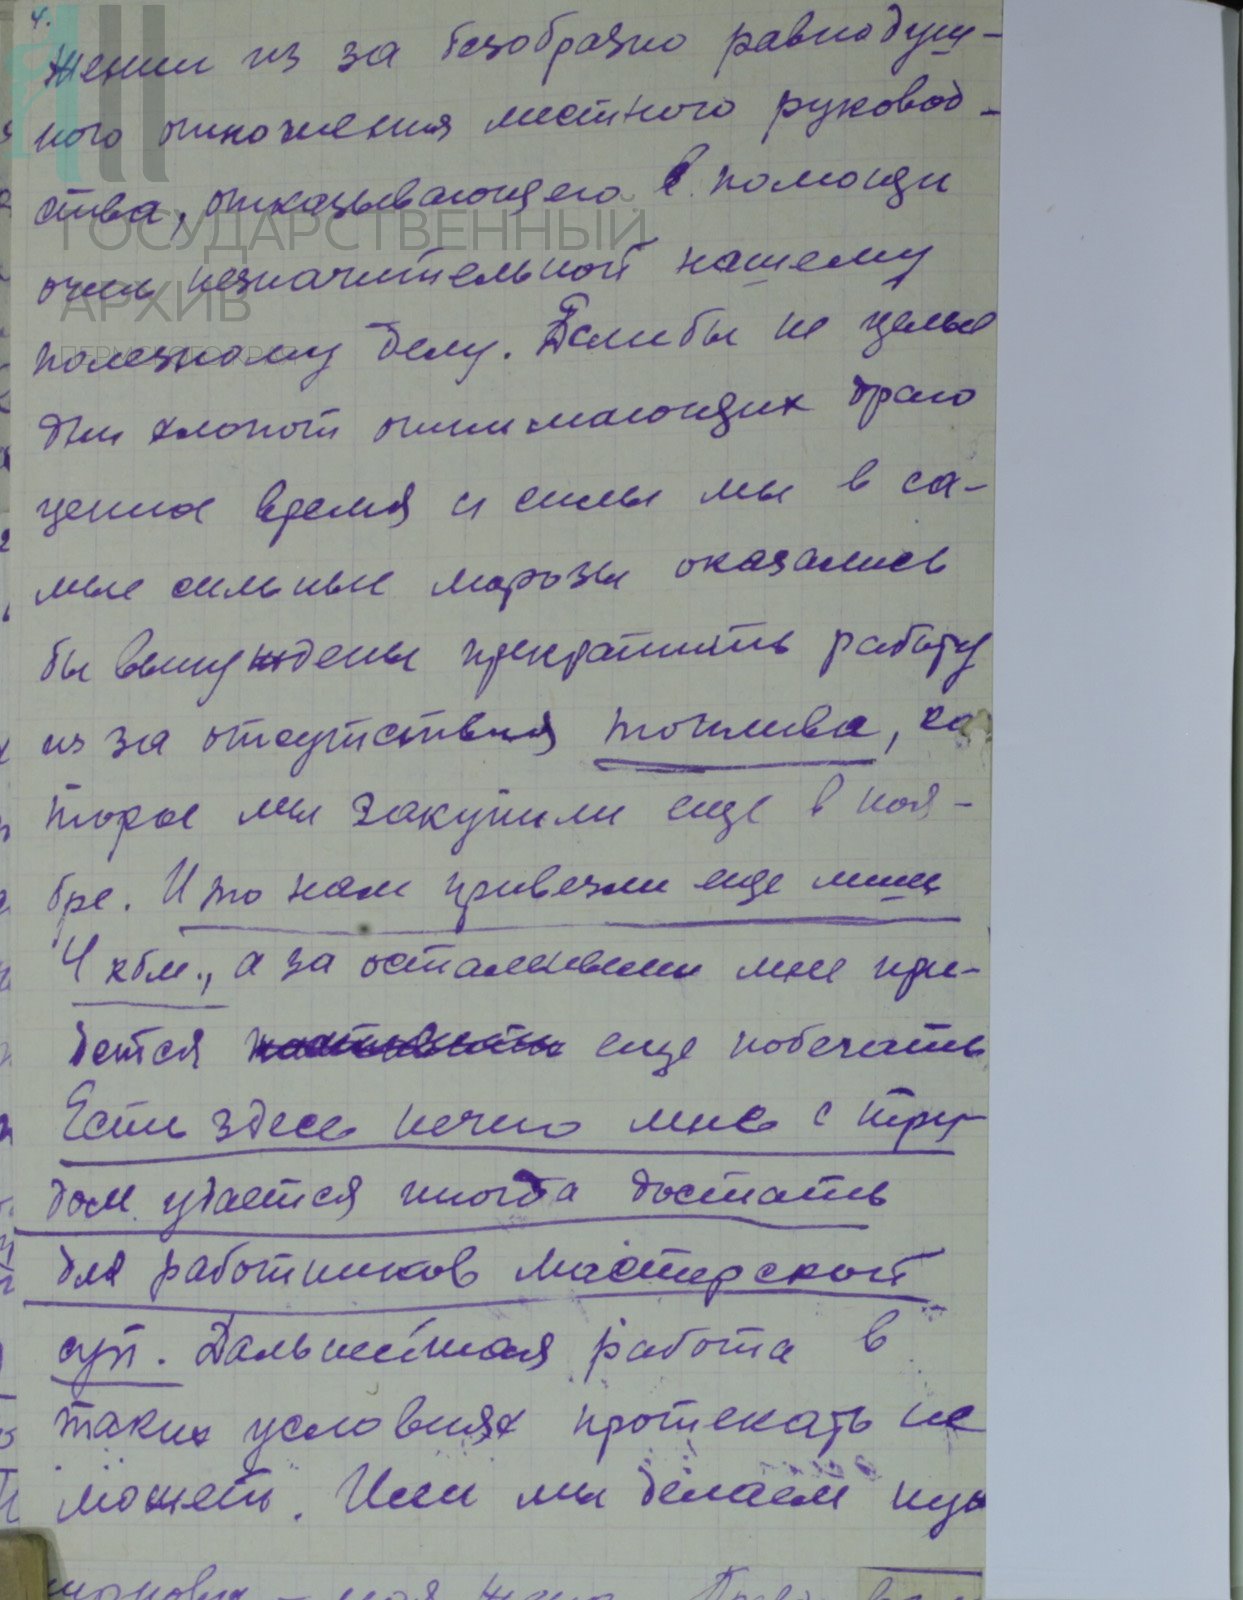 4.
жении из за безобразно равнодуш-
ного отношения местного руковод-
ства, отказывающего в помощи
очень незначительной нашему
полезному делу. Если бы не целые
дни хлопот отнимающих драго
ценное время и силы мы в са-
мые сильные морозы оказались
бы вынуждены прекратить работу
из за отсутствия топлива, ко
торое мы закупили еще в ноя-
бре. И то нам привезли еще лишь
4 кбм., а за остальными мне при-
дется еще побегать
Есть здесь нечего мне с тру-
дом удается иногда достать
для работников мастерской
суп. Дальнейшая работа в
таких условиях протекать не
может. Или мы делаем нуж
ГОСУДАРСТВЕННЫЙ
АРХИВ
моя жена